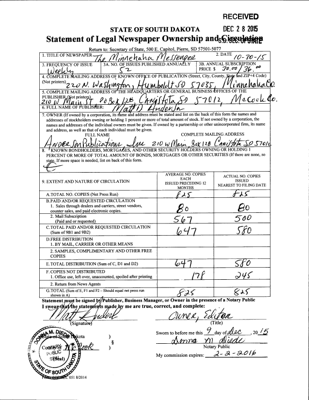 RECEIVED
DEC 28 2015
STATE OF SOUTH DAKOTA
Statement of Legal Newspaper Ownership and
Return to: Secretary of State, 500 E. Capitol, Pierre, SD 57501-5077
1. TITLE OF NEWSPAPER The Minnehaha Messenger
2. DATE 10-20-15
3. FREQUENCY OF ISSUE Weekly
3A. NO. OF ISSUES PUBLISHED ANNUALLY 52
3B. ANNUAL SUBSCRIPTION PRICE $
4. COMPLETE MAILING ADDRESS OF KNOWN OFFICE OF PUBLICATION (Street, City, County, State and ZIP+4 Code)
(Not printers) 220 N. Washington, Humboldt SD 57035, Minnehaha Co.
5. COMPLETE MAILING ADDRESS OF THE HEADQUARTERS OF GENERAL BUSINESS OFFICES OF THE
PUBLISHER (Not printer)
210 W Main St Canistota SD 57012, McCook Co.
6. FULL NAME OF PUBLISHER: Matt Anderson
7. OWNER (If owned by a corporation, its name and address must be stated and list on the back of this form the names and
addresses of stockholders owning or holding 1 percent or more of total amount of stock. If not owned by a corporation, the
names and addresses of the individual owners must be given. If owned by a partnership or other unincorporated firm, its name
and address, as well as that of each individual must be given.
FULL NAME
COMPLETE MAILING ADDRESS
Anderson Publications, Inc 210 W Main, Box 128 Canistota SD 57012
8. KNOWN BONDHOLDERS, MORTGAGEES, AND OTHER SECURITY HOLDERS OWNING OR HOLDING 1
PERCENT OR MORE OF TOTAL AMOUNT OF BONDS, MORTGAGES OR OTHER SECURITIES (If there are none, so
state. If more space is needed, list on back of this form.
9. EXTENT AND NATURE OF CIRCULATION
AVERAGE NO. COPIES
EACH
ISSUED PRECEDING 12
MONTHS
ACTUAL NO. COPIES
ISSUED
NEAREST TO FILING DATE
A. TOTAL NO. COPIES (Net Press Run) 825 825
B. PAID AND/OR REQUESTED CIRCULATION
1. Sales through dealers and carriers, street vendors,
counter sales, and paid electronic copies. 80 80
2. Mail Subscription
(Paid and or requested) 567 500
C. TOTAL PAID AND/OR REQUESTED CIRCULATION
(Sum of 9B1 and 9B2) 647 580
D. FREE DISTRIBUTION
1. BY MAIL, CARRIER OR OTHER MEANS
2. SAMPLES, COMPLIMENTARY AND OTHER FREE
COPIES
E. TOTAL DISTRIBUTION (Sum of C, D1 and D2) 647 580
F. COPIES NOT DISTRIBUTED
1. Office use, left over, unaccounted, spoiled after printing 178 245
2. Return from News Agents
G. TOTAL (Sum of E, F1 and F2 - Should equal net press run
shown in A) 825 825
Statement must be signed by Publisher, Business Manager, or Owner in the presence of a Notary Public
I swear that the statements made by me are true, correct, and complete:
Matt Anderson
Owner, Editor
(Signature)
(Title)
Sworn to before me this 9 day of Dec, 2015
Donna M
Notary Public
My commission expires: 2-2-2016
(Seal)